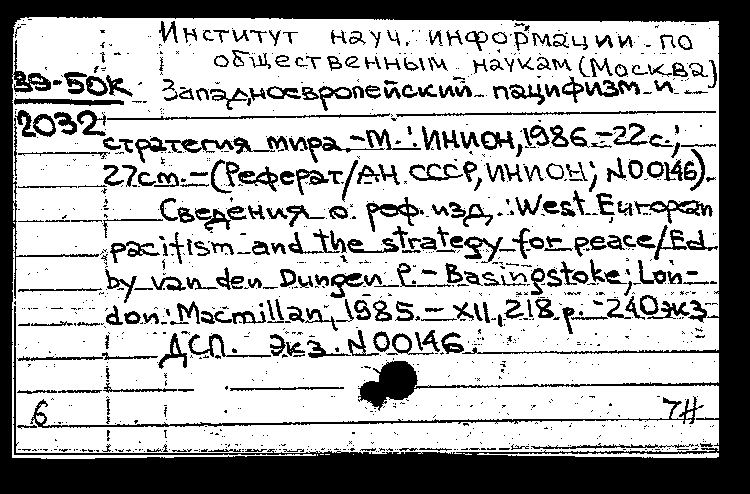 Институт науч. информации по
общественным наукам (Москва)
39-БОК
Западноевропейский пацифизм и
2032
стратегия мира.-М.:ИНИОН,1986.-22с.;
27cm.-(Реферат/АН СССР,ИНИОН; N00146).
Сведения о реф. изд.:West European
pacifism and the strategy for peace/Ed.
by van den Dungen P.-Basingstoke; Lon-
don:Macmillan, 1985.-XII,218 p. -240экз
ДСП. Экз. N00146.
6
7Н